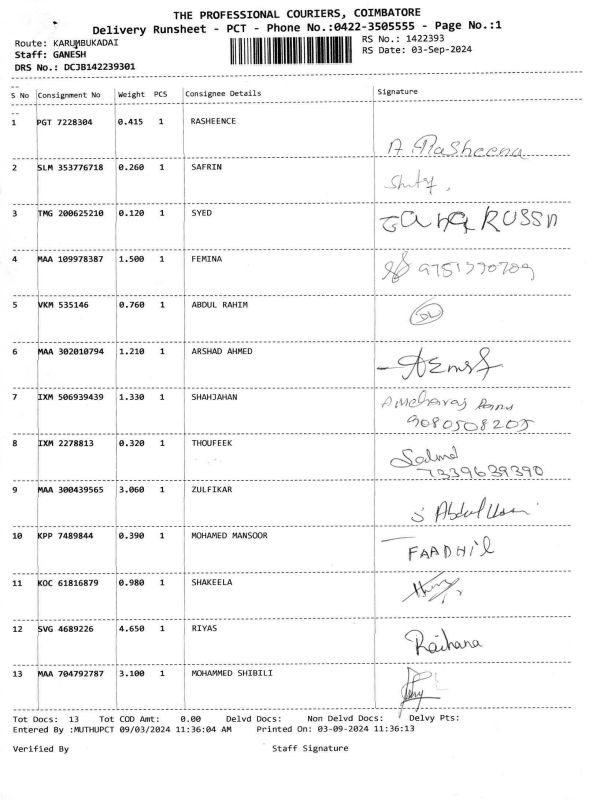 THE PROFESSIONAL COURIERS, COIMBATORE
Delivery Runsheet - PCT - Phone No.:0422-3505555 - Page No.:1
Route: KARUMBUKADAI RS No.: 1422393
Staff: GANESH RS Date: 03-Sep-2024
DRS No.: DCJB142239301
S No Consignment No Weight PCS Consignee Details Signature
1 PGT 7228304 0.415 1 RASHEENCE
A. Rasheena
2 SLM 353776718 0.260 1 SAFRIN
3 TMG 200625210 0.120 1 SYED
4 MAA 109978387 1.500 1 FEMINA
9751770709
5 VKM 535146 0.760 1 ABDUL RAHIM
DL
6 MAA 302010794 1.210 1 ARSHAD AHMED
7 IXM 506939439 1.330 1 SHAHJAHAN
9080508205
8 IXM 2278813 0.320 1 THOUFEEK
7339639390
9 MAA 300439565 3.060 1 ZULFIKAR
S Abdul
10 KPP 7489844 0.390 1 MOHAMED MANSOOR
FAADHIL
11 KOC 61816879 0.980 1 SHAKEELA
12 SVG 4689226 4.650 1 RIYAS
Raihana
13 MAA 704792787 3.100 1 MOHAMMED SHIBILI
Tot Docs: 13 Tot COD Amt: 0.00 Delvd Docs: Non Delvd Docs: Delvy Pts:
Entered By :MUTHUPCT 09/03/2024 11:36:04 AM Printed On: 03-09-2024 11:36:13
Verified By Staff Signature